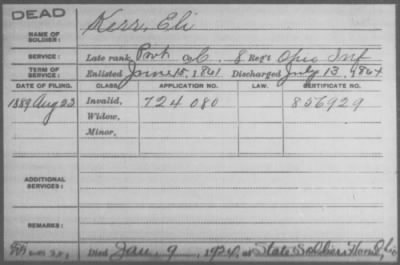 DEAD
NAME OF SOLDIER: Kerr, Eli
SERVICE: Late rank, Pvt Co. C. 8 Reg't Ohio Inf
TERM OF SERVICE: Enlisted June 18, 1861 Discharged July 13, 1864
DATE OF FILING. CLASS. APPLICATION NO. LAW. CERTIFICATE NO.
1889 Aug 22 Invalid, 724 080 856929
Widow,
Minor,
ADDITIONAL SERVICES:
REMARKS:
Died Jan. 9, 1924, at State Soldiers Home,